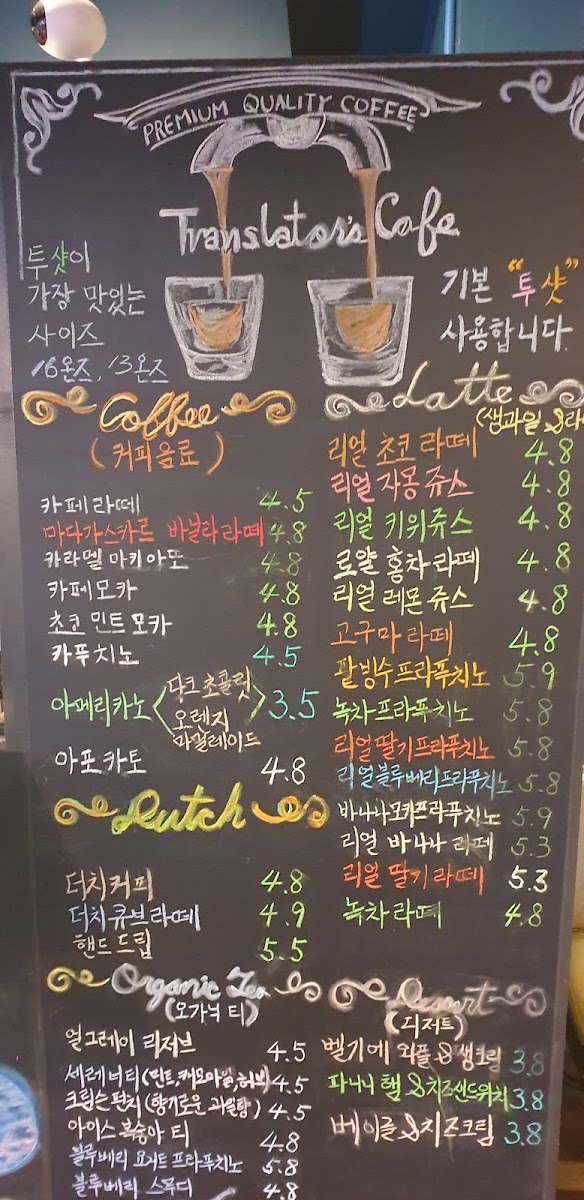 PREMIUM QUALITY COFFEE
Translator's Cafe
투샷이
가장 맛있는
사이즈
16온즈, 13온즈
기본 "투샷"
사용합니다.
Coffee
(커피음료)
카페라떼 4.5
마다가스카르 바닐라라떼 4.8
카라멜 마키아또 4.8
카페모카 4.8
초코 민트 모카 4.8
카푸치노 4.5
아메리카노 < 다크초콜릿 오렌지 마말레이드 > 3.5
아포카토 4.8
Dutch
더치커피 4.8
더치큐브라떼 4.9
핸드드립 5.5
Organic Tea
(오가닉 티)
얼그레이 리저브 4.5
세레너티(민트,캐모마일,허브) 4.5
크림슨 펀치(향기로운 과일향) 4.5
아이스 복숭아 티 4.8
블루베리 요거트 프라푸치노 5.8
블루베리 스무디 4.8
Latte
(생과일 &
리얼 초코 라떼 4.8
리얼 자몽 쥬스 4.8
리얼 키위쥬스 4.8
로얄 홍차 라떼 4.8
리얼 레몬 쥬스 4.8
고구마 라떼 4.8
팥빙수프라푸치노 5.9
녹차프라푸치노 5.8
리얼딸기프라푸치노 5.8
리얼블루베리프라푸치노 5.8
바나나모카프라푸치노 5.9
리얼 바나나 라떼 5.3
리얼 딸기라떼 5.3
녹차라떼 4.8
Dessert
(디저트)
벨기에 와플&생크림 3.8
파니니 햄&치즈샌드위치 3.8
베이글&치즈크림 3.8